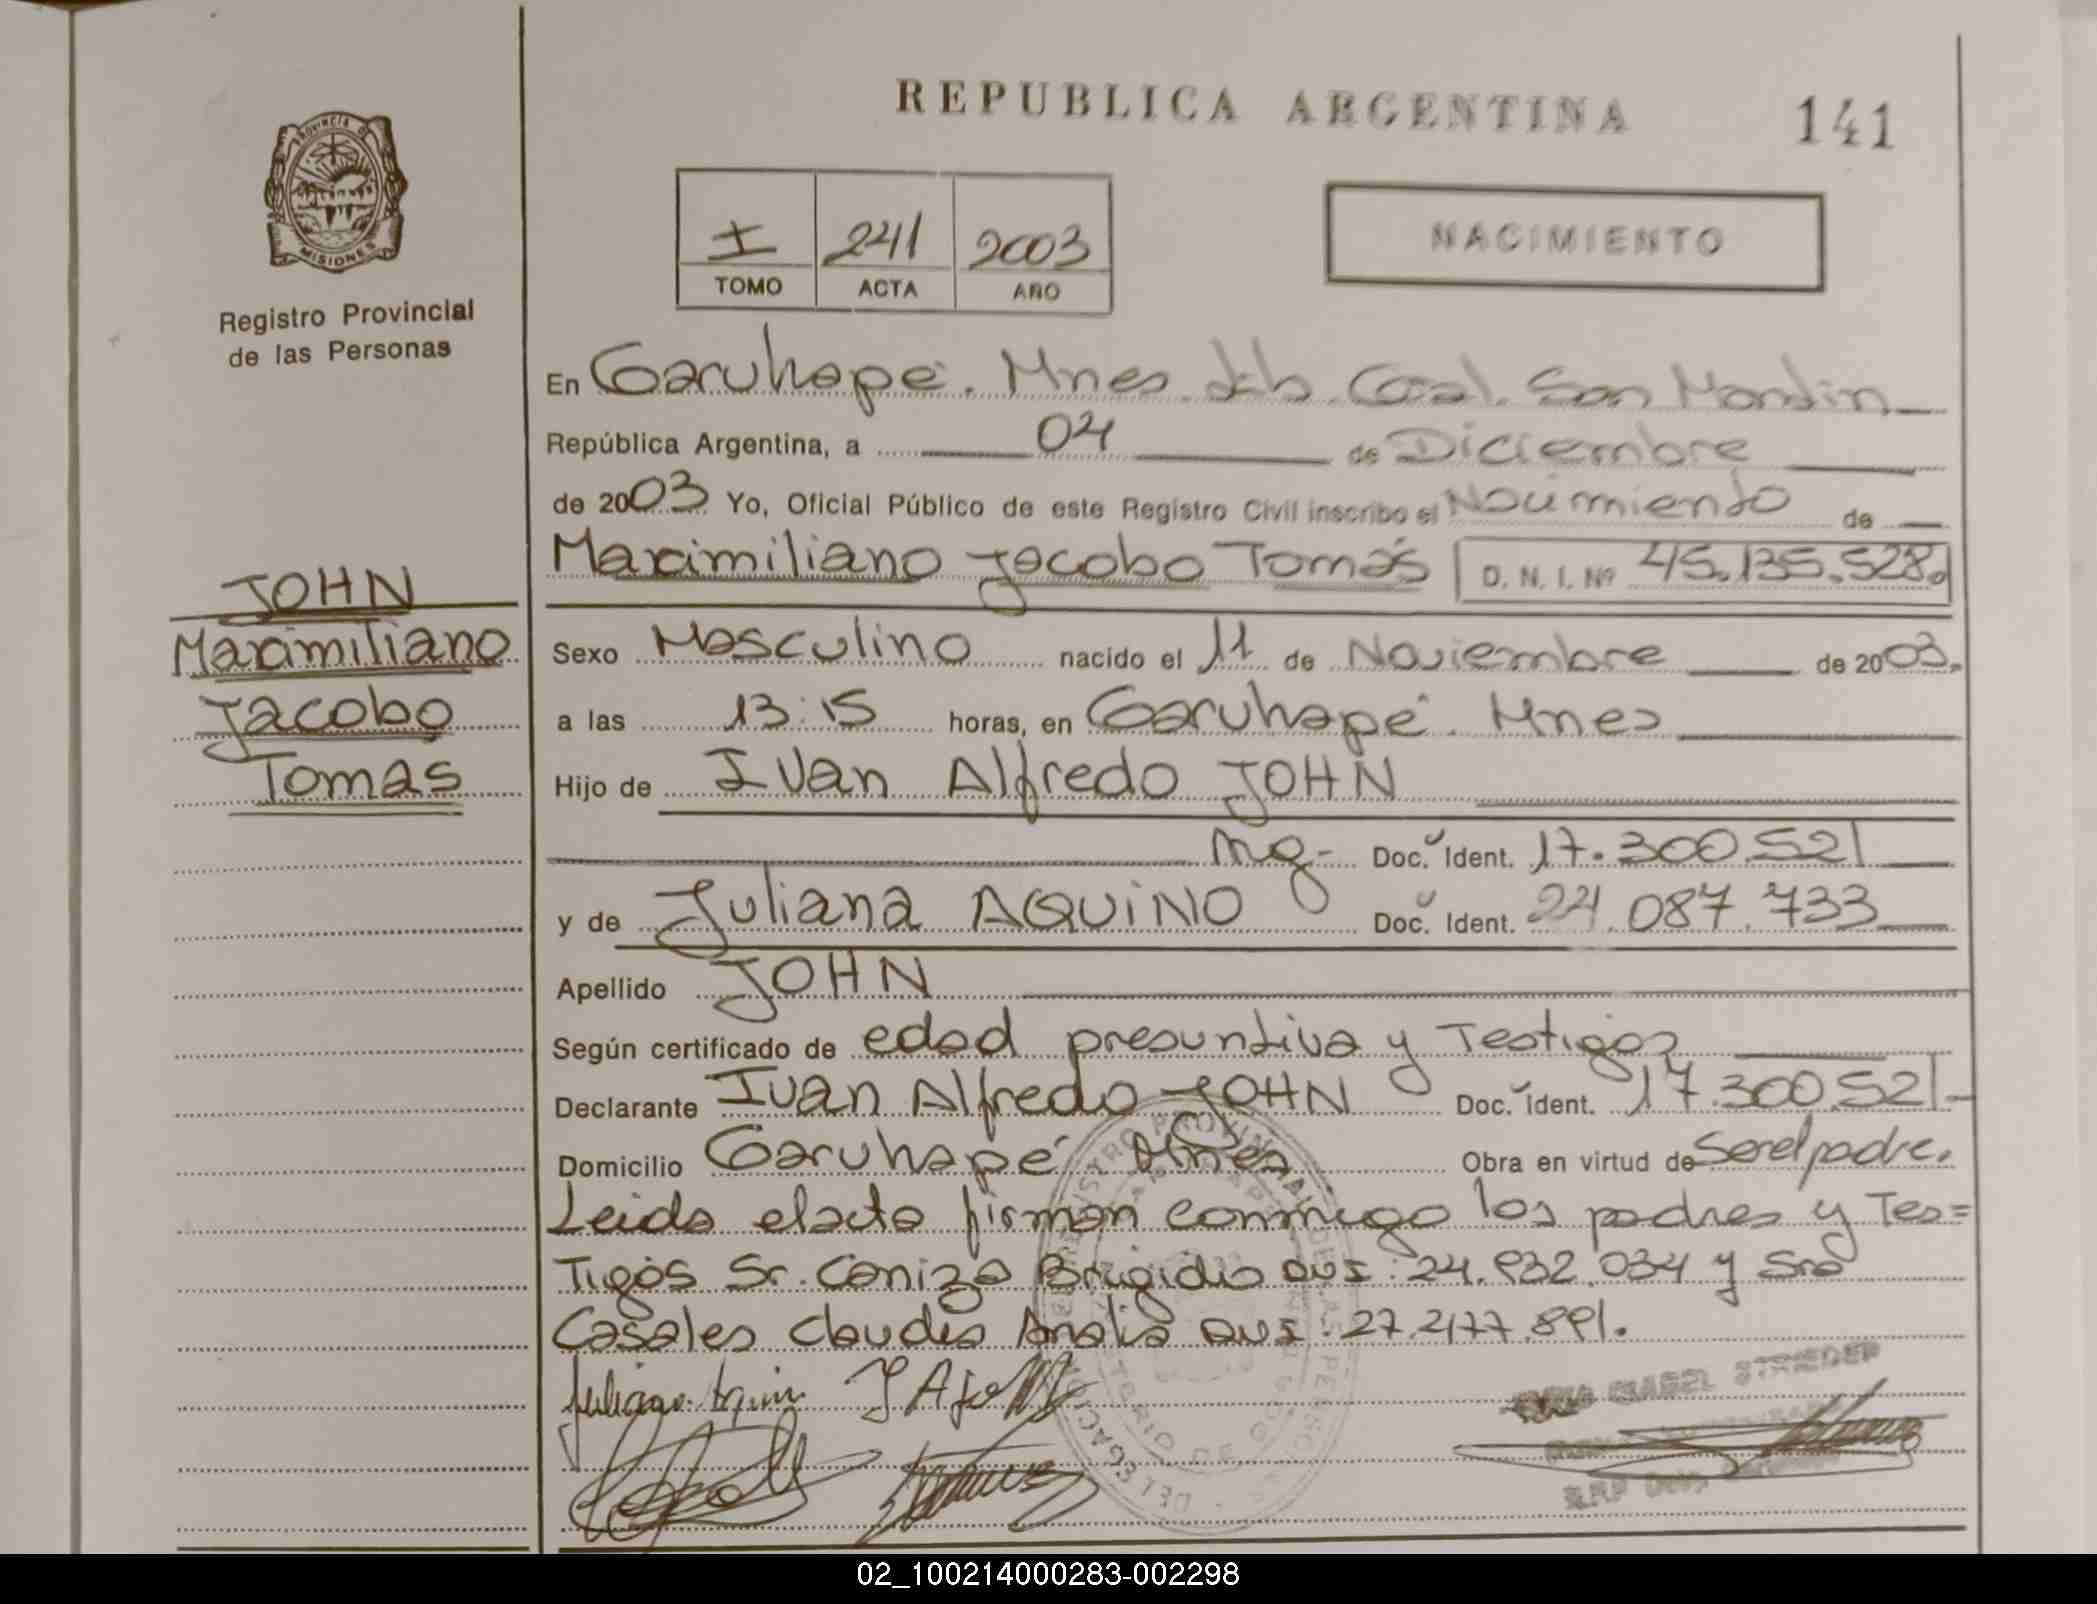 PROVINCIA DE
MISIONES
Registro Provincial
de las Personas
JOHN
Maximiliano
Jacobo
Tomas
REPUBLICA ARGENTINA 141
I 241 2003
TOMO ACTA AÑO
NACIMIENTO
En Garuhapé. Mnes. Lib. Gral. San Martin
República Argentina, a 04 de Diciembre
de 2003 Yo, Oficial Público de este Registro Civil inscribo el Nacimiento de
Maximiliano Jacobo Tomás D. N. I. Nº 45.135.528.
Sexo Masculino nacido el 11 de Noviembre de 2003.
a las 13:15 horas, en Garuhapé. Mnes
Hijo de Ivan Alfredo JOHN
Doc. Ident. 17.300.521
y de Juliana AQUINO Doc. Ident. 24.087.733
Apellido JOHN
Según certificado de edad presuntiva y Testigos
Declarante Ivan Alfredo JOHN Doc. Ident. 17.300.521-
Domicilio Garuhapé Mnes. Obra en virtud de Ser el padre.
Leida el acta firman conmigo los padres y Tes=
Tigos Sr. Caniza Brigido DNI: 24.832.034 y Sra
Casales Claudia Analia DNI: 27.277.891.
Juliana Aquin
ISABEL STRIEDER
02_100214000283-002298